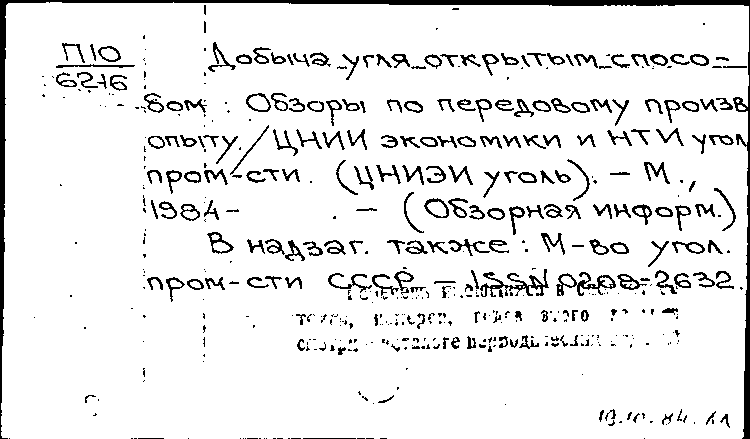 П10
6216
Добыча угля открытым спосо-
бом : Обзоры по передовому произв
опыту. / ЦНИИ экономики и НТИ угол
пром-сти. (ЦНИЭИ уголь). – М.,
1984- . – (Обзорная информ.)
В надзаг. также: М-во угол.
пром-сти СССР – ISSN 0208-2632.
в
этого
смотри в каталоге периодических
19.10.84.